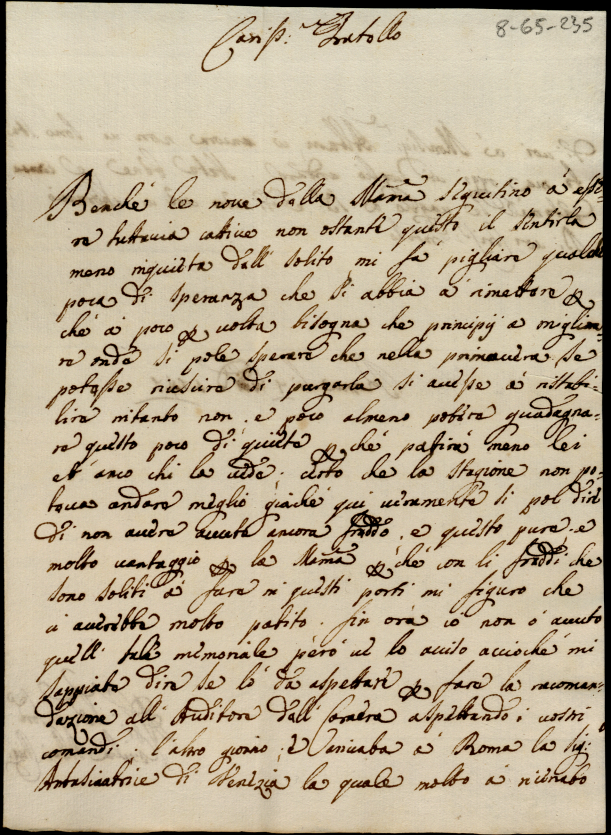 8-65-235
Cariss:mo Fratello
Benché le nove dalla Mamà seguitino à esse-
re tuttavia cattive non ostante questo il sentirla
meno inquieta dell' solito mi fà pigliare qualche
poca di speranza che si abbia à rimettere p
ché à poco p volta bisogna che principij a migliora-
re onde si pole sperare che nella primavera se
potesse riuscire di purgarla si avesse à ristabi-
lire intanto non e poco almeno potere guadagna-
re questo poco di quiete p ché patirà meno lei
et anco chi la vede. certo che la stagione non po-
teva andare meglio giache qui veramente si pol dire
di non avere avuto ancora freddo, e questo pure e
molto vantaggio p la Mamà p ché con li freddi che
sono soliti à fare in questi porti mi figuro che
ci averebbe molto patito. fin ora io non ò avuto
quell' tale memoriale però ve lo aviso acciochè mi
sappiate dire se lò da aspettare p fare la racoman-
dazione all' Auditore dell' Camera aspettando i vostri
comandi. l'altro giorno è arivata à Roma la Sig:
Anbasciatrice di Venezia la quale molto à